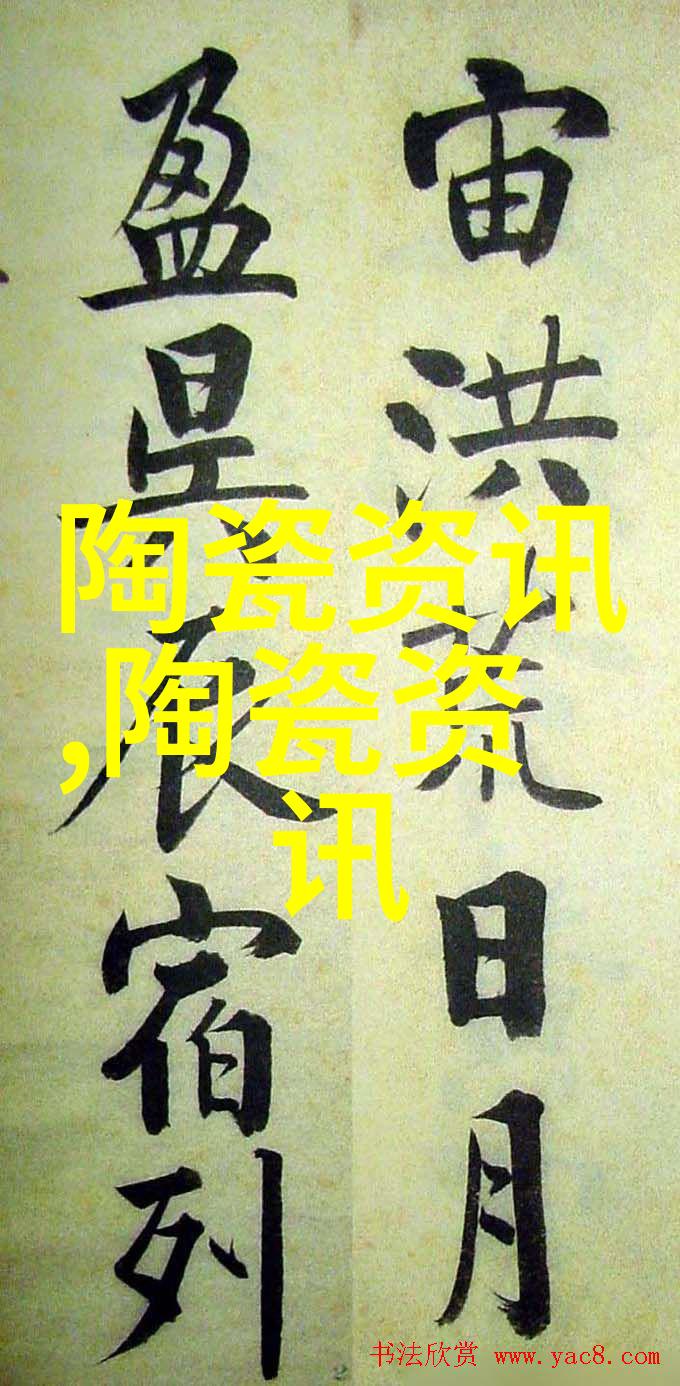 宙洪荒日月
盈昃辰宿列
陶瓷资讯
,陶瓷资
讯
书法欣赏 www.yac8.com
2